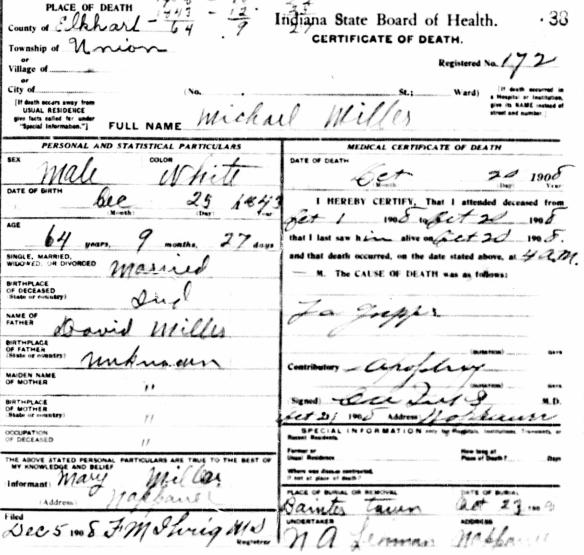 PLACE OF DEATH
County of Elkhart
1843 - 12
64 9 27
Indiana State Board of Health.
38
CERTIFICATE OF DEATH.
Township of Union
or
Village of
or
City of
Registered No. 172
(No. St.; Ward)
[If death occurs away from USUAL RESIDENCE give facts called for under "Special Information."]
[If death occurred in a Hospital or Institution, give its NAME instead of street and number.]
FULL NAME Michael Miller
PERSONAL AND STATISTICAL PARTICULARS
SEX Male
COLOR White
DATE OF BIRTH Dec 25 1843
(Month) (Day) Year
AGE
64 years, 9 months, 27 days
SINGLE, MARRIED, WIDOWED, OR DIVORCED Married
BIRTHPLACE OF DECEASED (State or country) Ind
NAME OF FATHER David Miller
BIRTHPLACE OF FATHER (State or country) Unknown
MAIDEN NAME OF MOTHER "
BIRTHPLACE OF MOTHER (State or country) "
OCCUPATION OF DECEASED "
THE ABOVE STATED PERSONAL PARTICULARS ARE TRUE TO THE BEST OF MY KNOWLEDGE AND BELIEF
Informant) Mary Miller
(Address) Nappanee
Filed
Dec 5 1908 F M Ihrig MD
Registrar
MEDICAL CERTIFICATE OF DEATH
DATE OF DEATH
Oct 1908
(Month) (Day) Year
I HEREBY CERTIFY, That I attended deceased from
Oct 1 1908 to Oct 1908
that I last saw him alive on Oct 1908.
and that death occurred, on the date stated above, at 4 a.m.
M. The CAUSE OF DEATH was as follows:
La Grippe
(DURATION) DAYS
Contributory
(DURATION) DAYS
Signed) M.D.
Oct 1908 Address Nappanee
SPECIAL INFORMATION only for Hospitals, Institutions, Transients, or Recent Residents.
Former or Usual Residence
How long at Place of Death?
Days
Where was disease contracted, if not at place of death?
PLACE OF BURIAL OR REMOVAL
town
DATE OF BURIAL
Oct 23 1908
UNDERTAKER
N A Lehman
ADDRESS
Nappanee